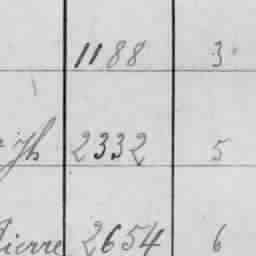 1188 3
Jh 2332 5
Pierre 2654 6